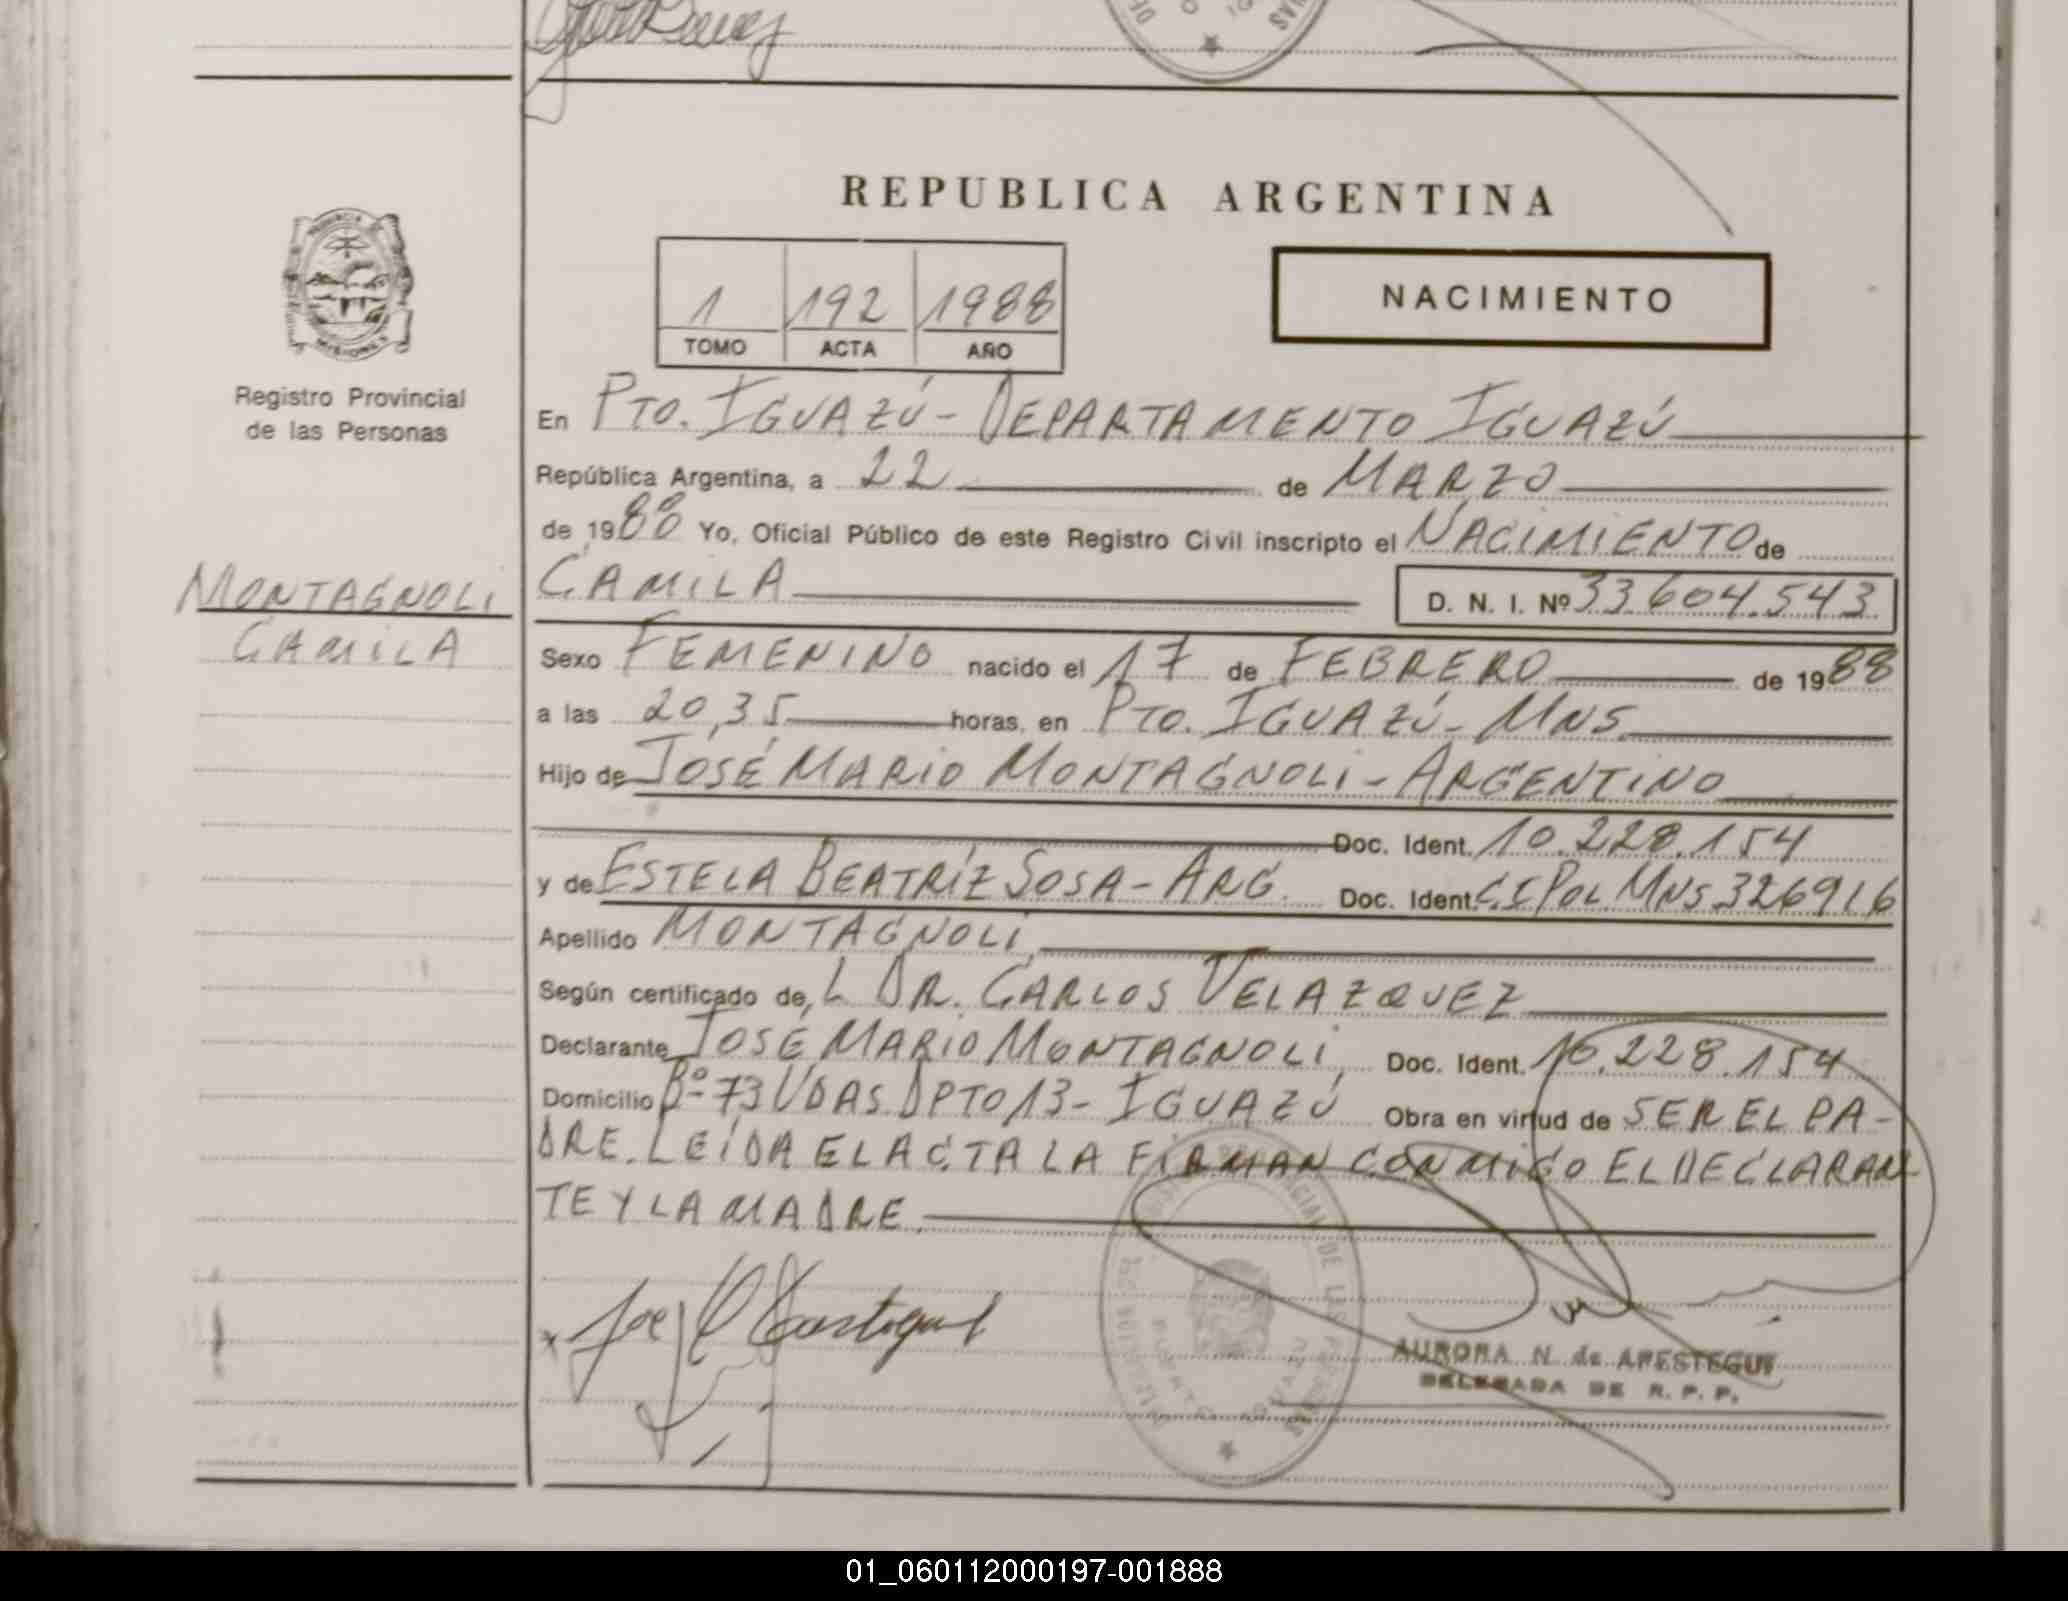 REPUBLICA ARGENTINA
1 192 1988
TOMO ACTA AÑO
NACIMIENTO
PROVINCIA
MISIONES
Registro Provincial
de las Personas
MONTAGNOLI
CAMILA
En PTO. IGUAZÚ - DEPARTAMENTO IGUAZÚ
República Argentina, a 22 de MARZO
de 1988 Yo, Oficial Público de este Registro Civil inscripto el NACIMIENTO de
CAMILA D. N. I. Nº 33.604.543
Sexo FEMENINO nacido el 17 de FEBRERO de 1988
a las 20,35 horas, en PTO. IGUAZÚ - MNS.
Hijo de JOSÉ MARIO MONTAGNOLI - ARGENTINO
Doc. Ident. 10.228.154
y de ESTELA BEATRÍZ SOSA - ARG. Doc. Ident. C.I POL MNS 326916
Apellido MONTAGNOLI
Según certificado de, L DR. CARLOS VELAZQUEZ
Declarante JOSÉ MARIO MONTAGNOLI, Doc. Ident. 10.228.154
Domicilio Bº 73 VDAS. DPTO 13 - IGUAZÚ Obra en virtud de SER EL PA-
DRE. LEÍDA EL ACTA LA FIRMAN CONMIGO EL DECLARAN
TE Y LA MADRE.
AURORA N. de ARESTEGUI
DELEGADA DE R. P. P.
01_060112000197-001888